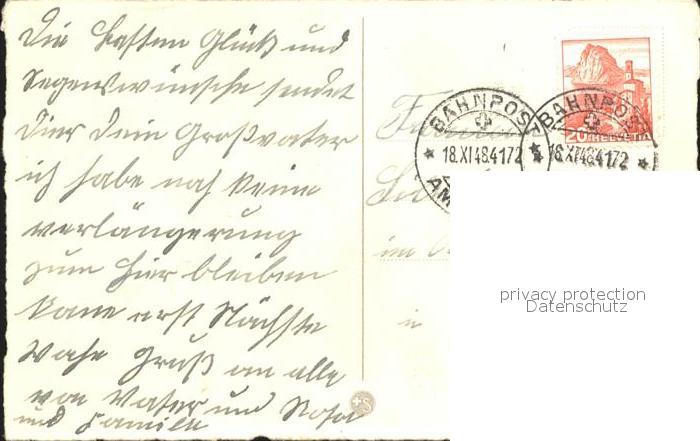 Die besten Glück und
Segenswünsche sendet
Dier Dein Großvater
ich habe noch keine
verlängerung
zum hier bleiben
kane erst Nächste
Wohe Gruß an alle
von Vater und
und Familie
BAHNPOST
18.XI48.4172
AM
BAHNPOST
18.XI48.4172
20 HELVETIA
im
in
privacy protection
Datenschutz